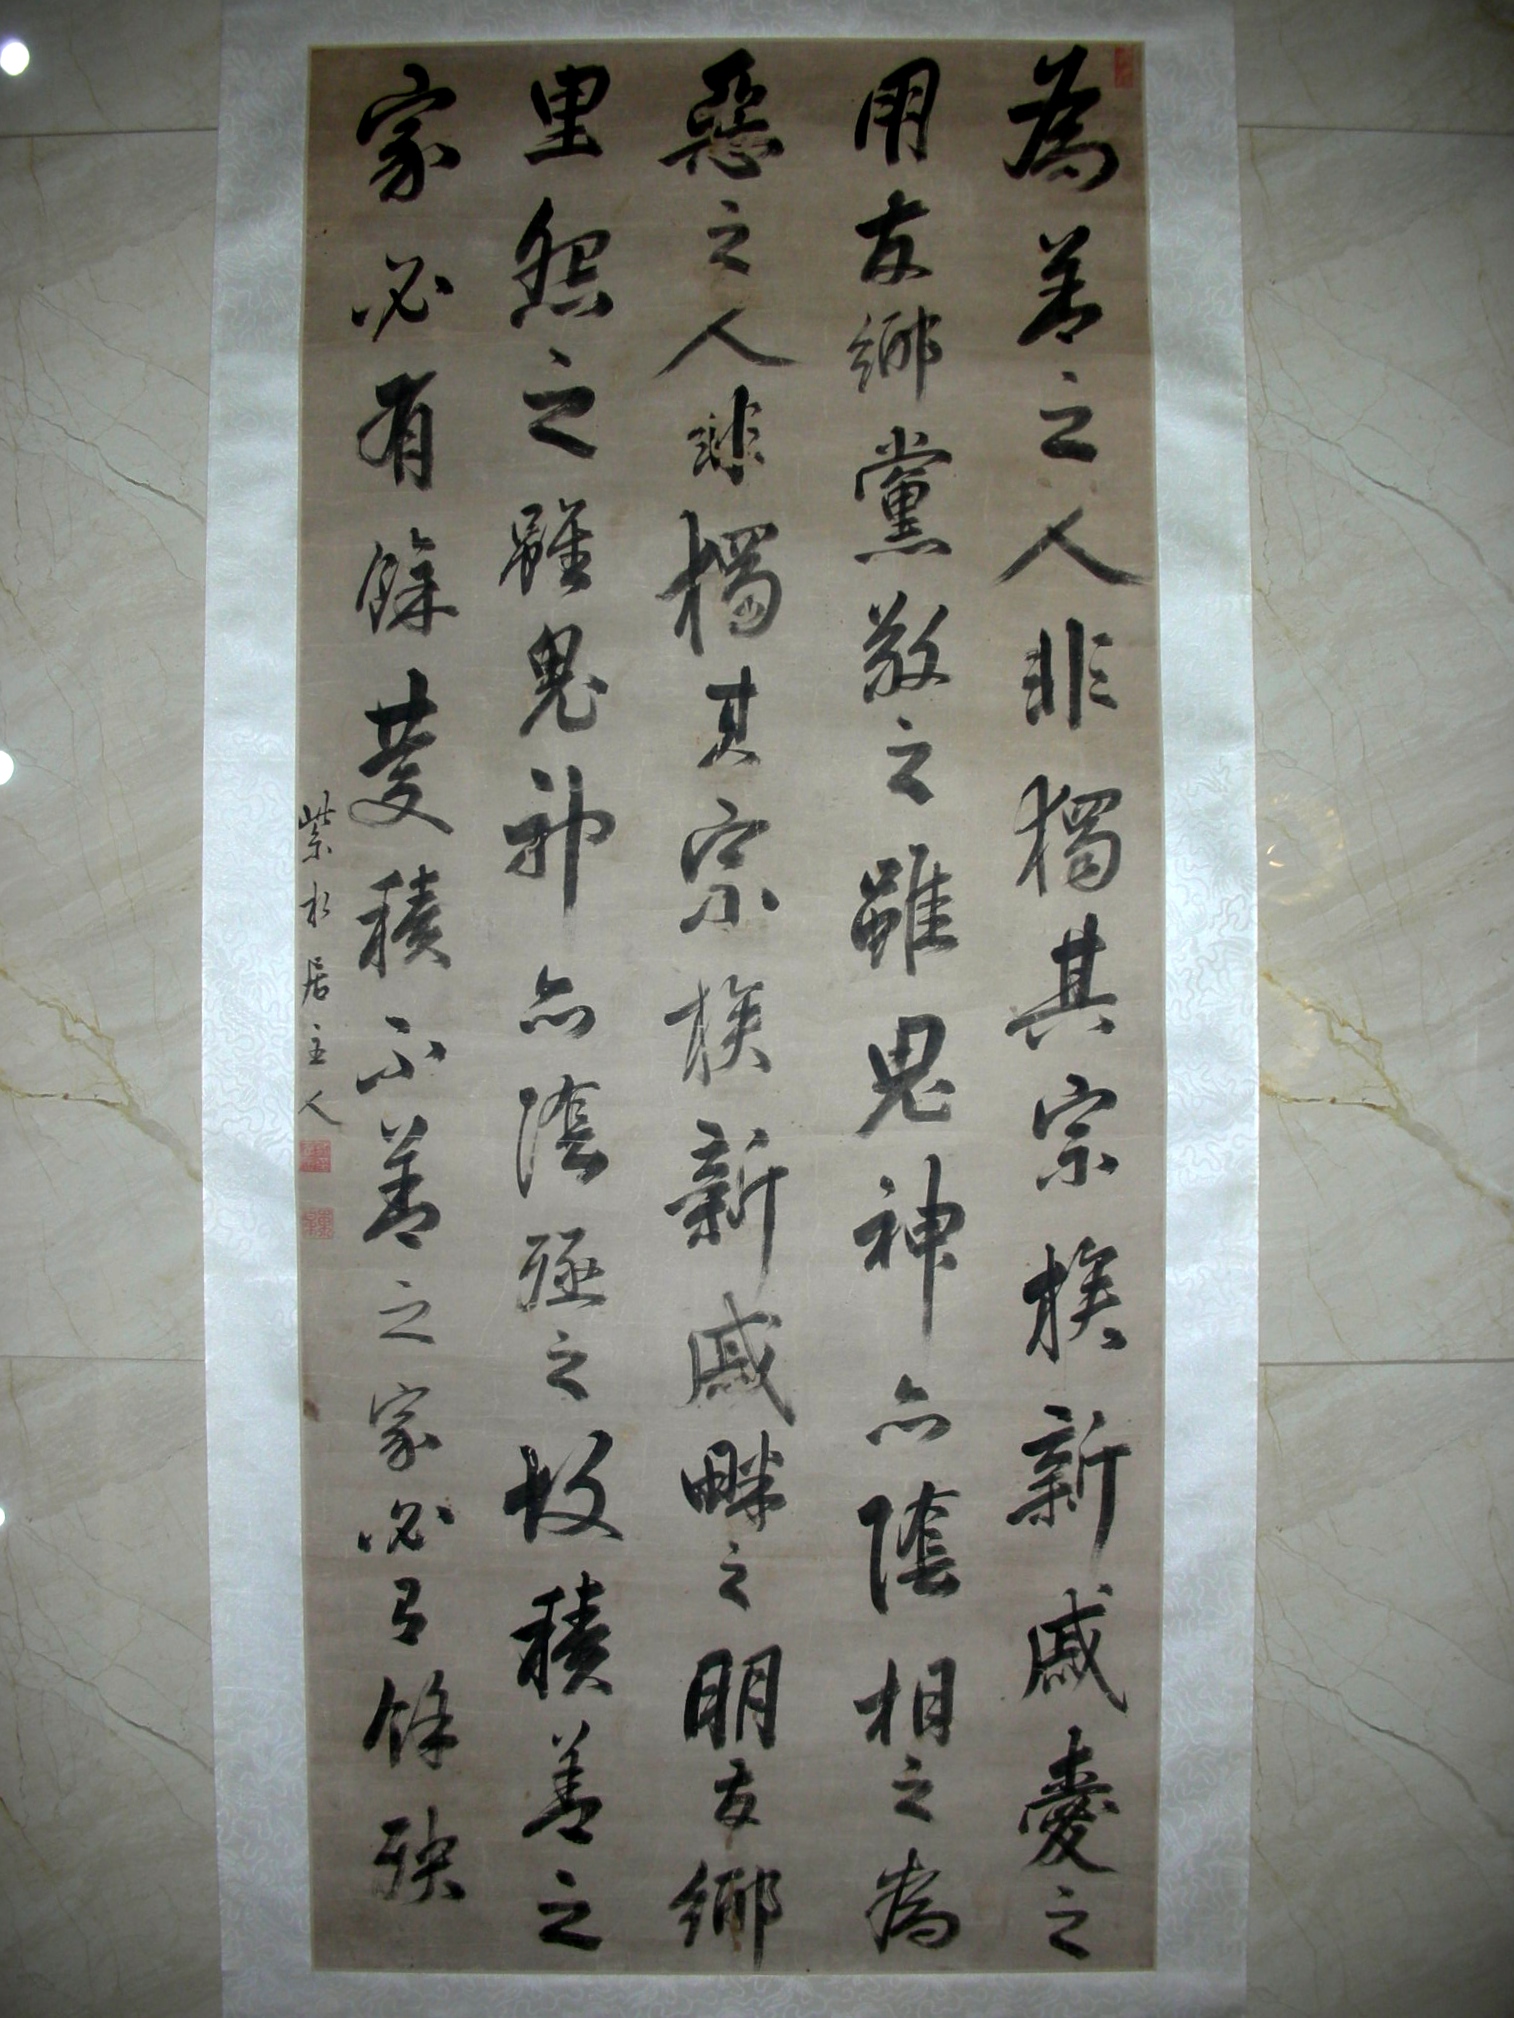 為善之人非獨其宗族新戚愛之
朋友鄉黨敬之雖鬼神亦陰相之為
惡之人非獨其宗族新戚畔之朋友鄉
里怨之雖鬼神亦陰殛之故積善之
家必有餘慶積不善之家必有餘殃
紫松居主人